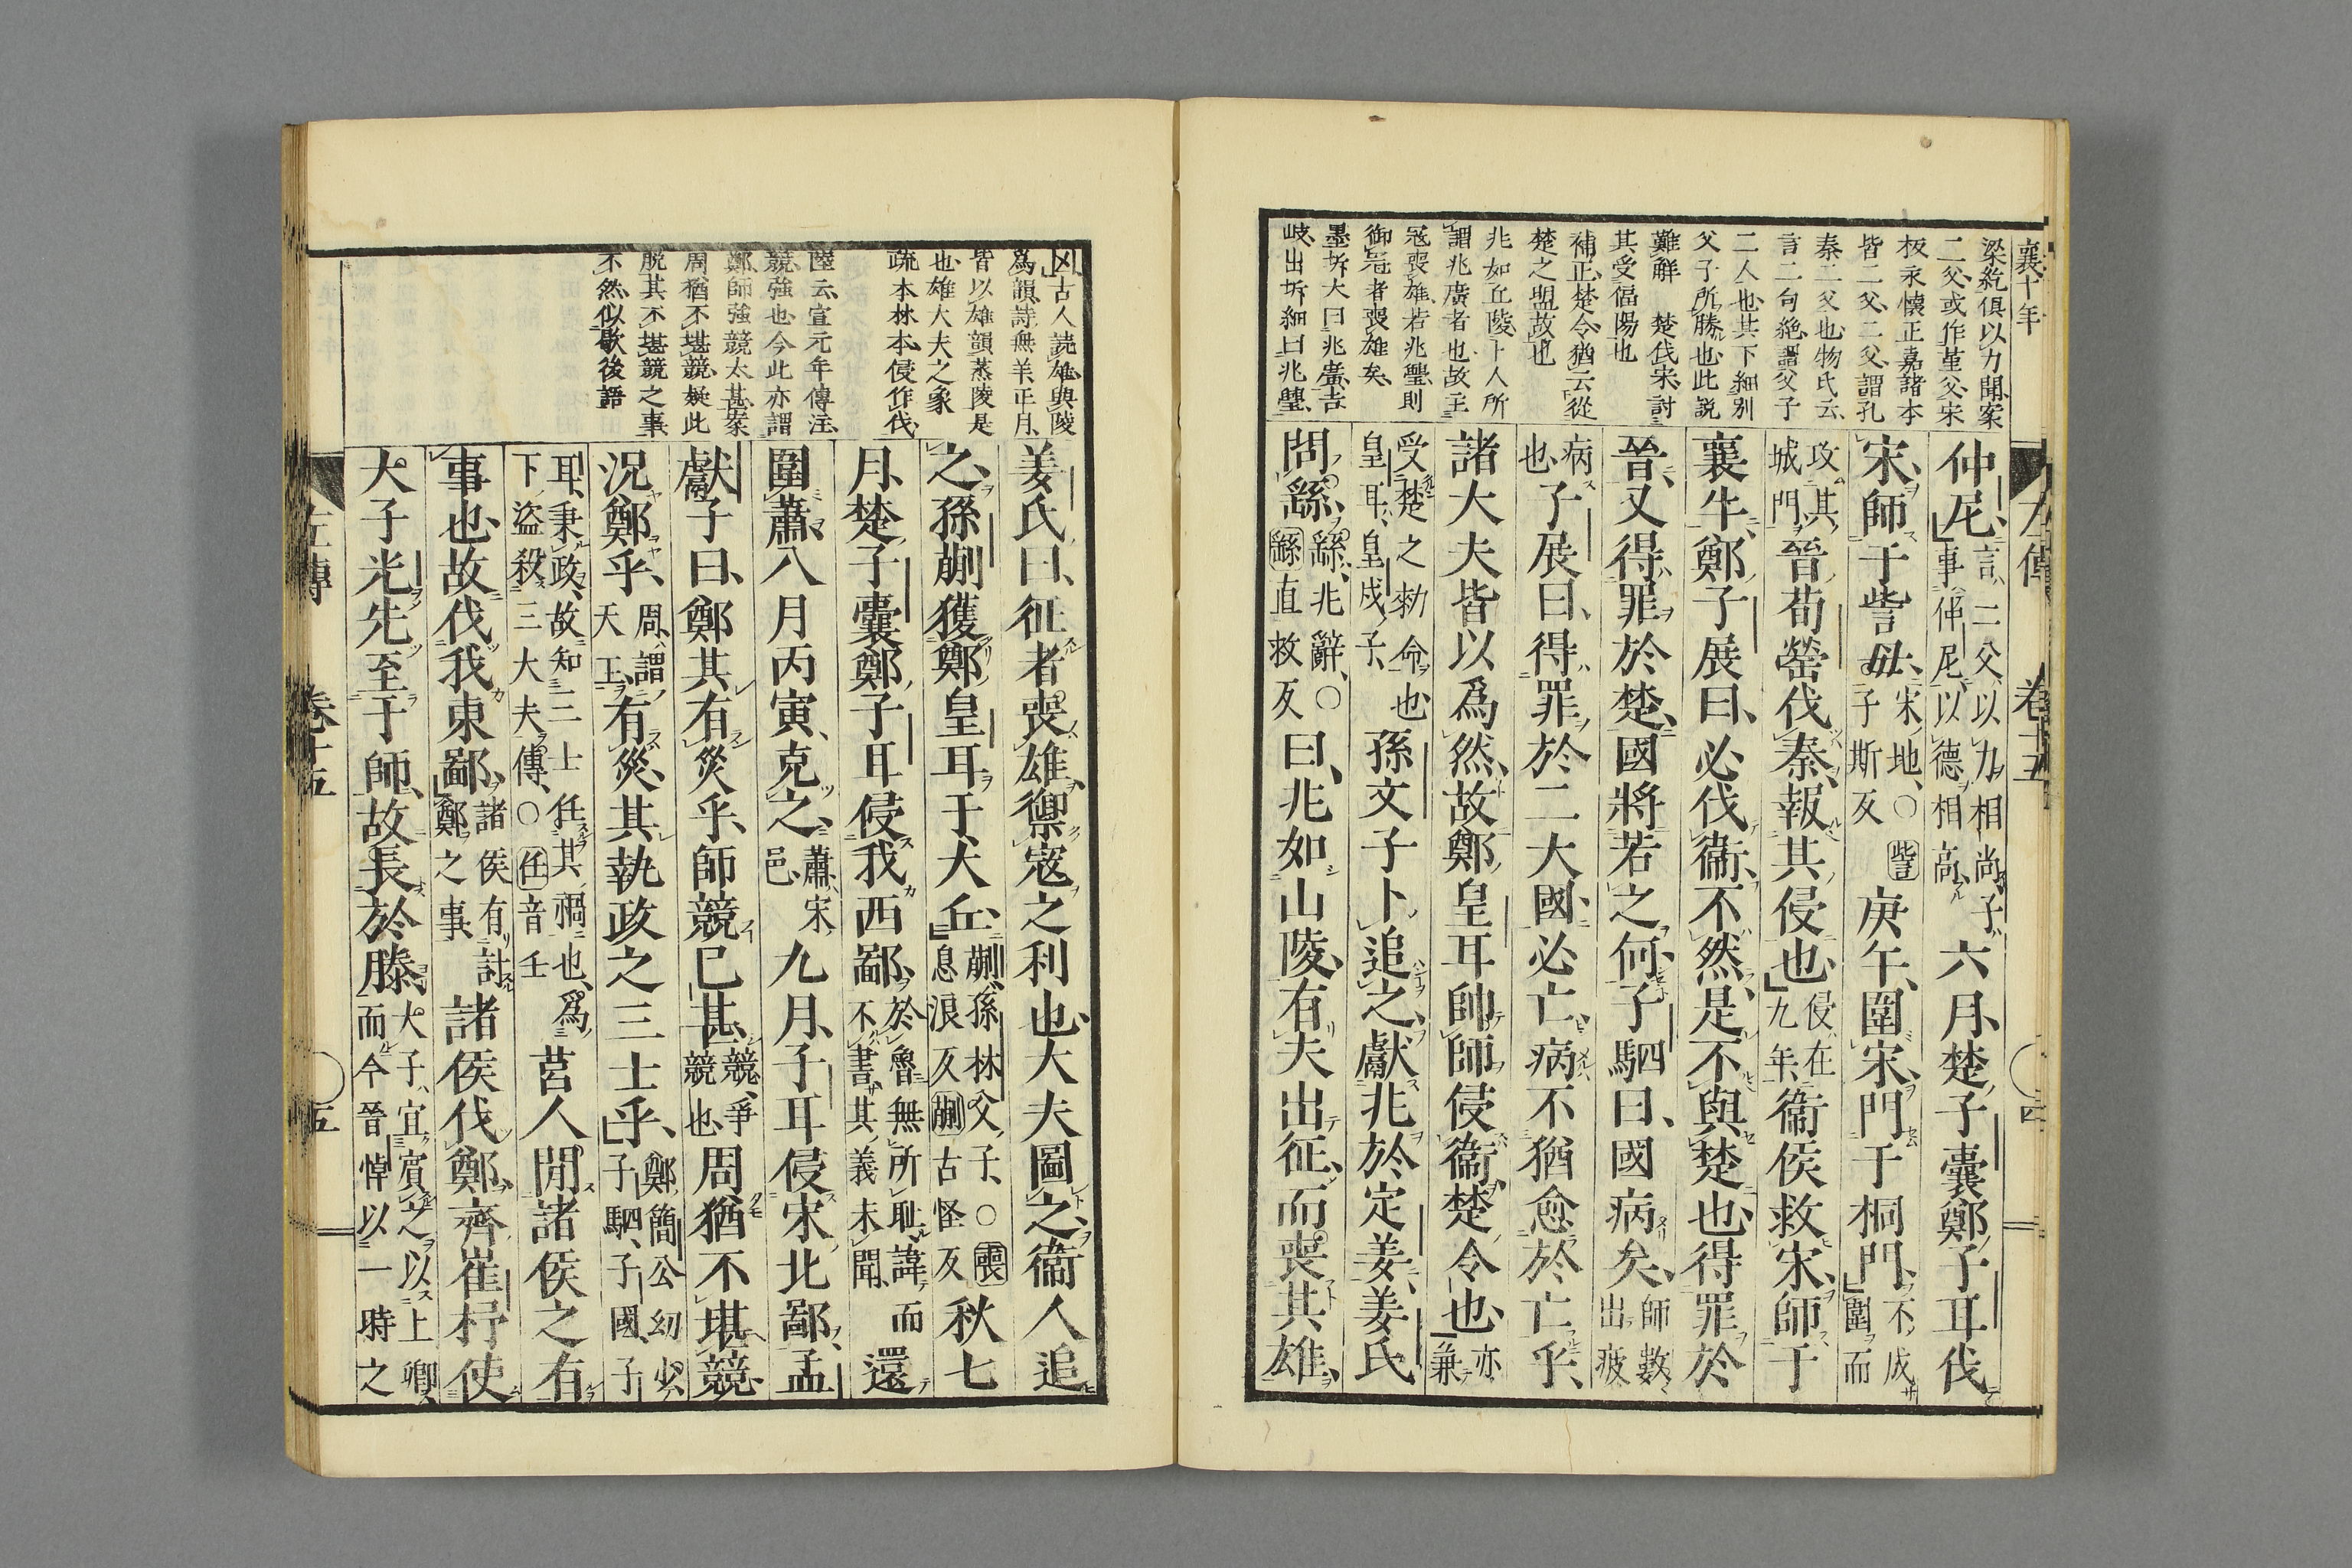 襄十年
梁紇俱以力聞案
二父或作堇父宋
板永懷正嘉諸本
皆二父二父謂孔
秦二父也物氏云
言二句絶謂父子
二人也其下細別
父子所勝也此説
難觧　楚伐宋討
其受偪陽也
補正楚令猶云從
楚之盟故也
兆如丘陵卜人所
謂兆廣者也故主
冦喪雄若兆璺則
御冦者喪雄矣
墨坼大曰兆廣吉
岐出坼細曰兆璺
左傳　卷十五　四
仲尼言二父以力相尚子事仲尼以德相高六月楚子囊鄭子耳伐
宋師于訾毋宋地○訾子斯反庚午圍宋門于桐門不成圍而
攻其城門晉荀罃伐秦報其侵也侵在九年衞侯救宋師于
襄牛鄭子展曰必伐衞不然是不與楚也得罪於
晉又得罪於楚國將若之何子駟曰國病矣師數出疲
病也子展曰得罪於二大國必亡病不猶愈於亡乎
諸大夫皆以爲然故鄭皇耳帥師侵衞楚令也亦兼
受楚之勑命也皇耳皇戍子孫文子卜追之獻兆於定姜姜氏
問繇繇兆辭○繇直救反曰兆如山陵有夫出征而喪其雄
凶古人読雄與陵
爲韻詩無羊正月
皆以雄韻蒸陵是
也雄大夫之象
疏本林本侵作伐
陸云宣元年傳注
競強也今此亦謂
鄭師強競太甚案
周猶不堪競疑此
脱其不堪競之事
不然似歇後語
姜氏曰征者喪雄禦寇之利也大夫圖之衞人追
之孫蒯獲鄭皇耳于犬丘蒯孫林父子○喪息浪反蒯古怪反秋七
月楚子囊鄭子耳侵我西鄙於魯無所耻諱而不書其義未聞還
圍蕭八月丙寅克之蕭宋邑九月子耳侵宋北鄙孟
獻子曰鄭其有災乎師競已甚競爭競也周猶不堪競
况鄭乎周謂天王有災其執政之三士乎鄭簡公幼少子駟子國子
耳秉政故知三士任其禍也爲下盜殺三大夫傳○任音壬莒人閒諸侯之有
事也故伐我東鄙諸侯有討鄭之事諸侯伐鄭齊崔杼使
大子光先至于師故長於滕大子宜賓之以上卿而今晉悼以一時之
左傳　卷十五　五